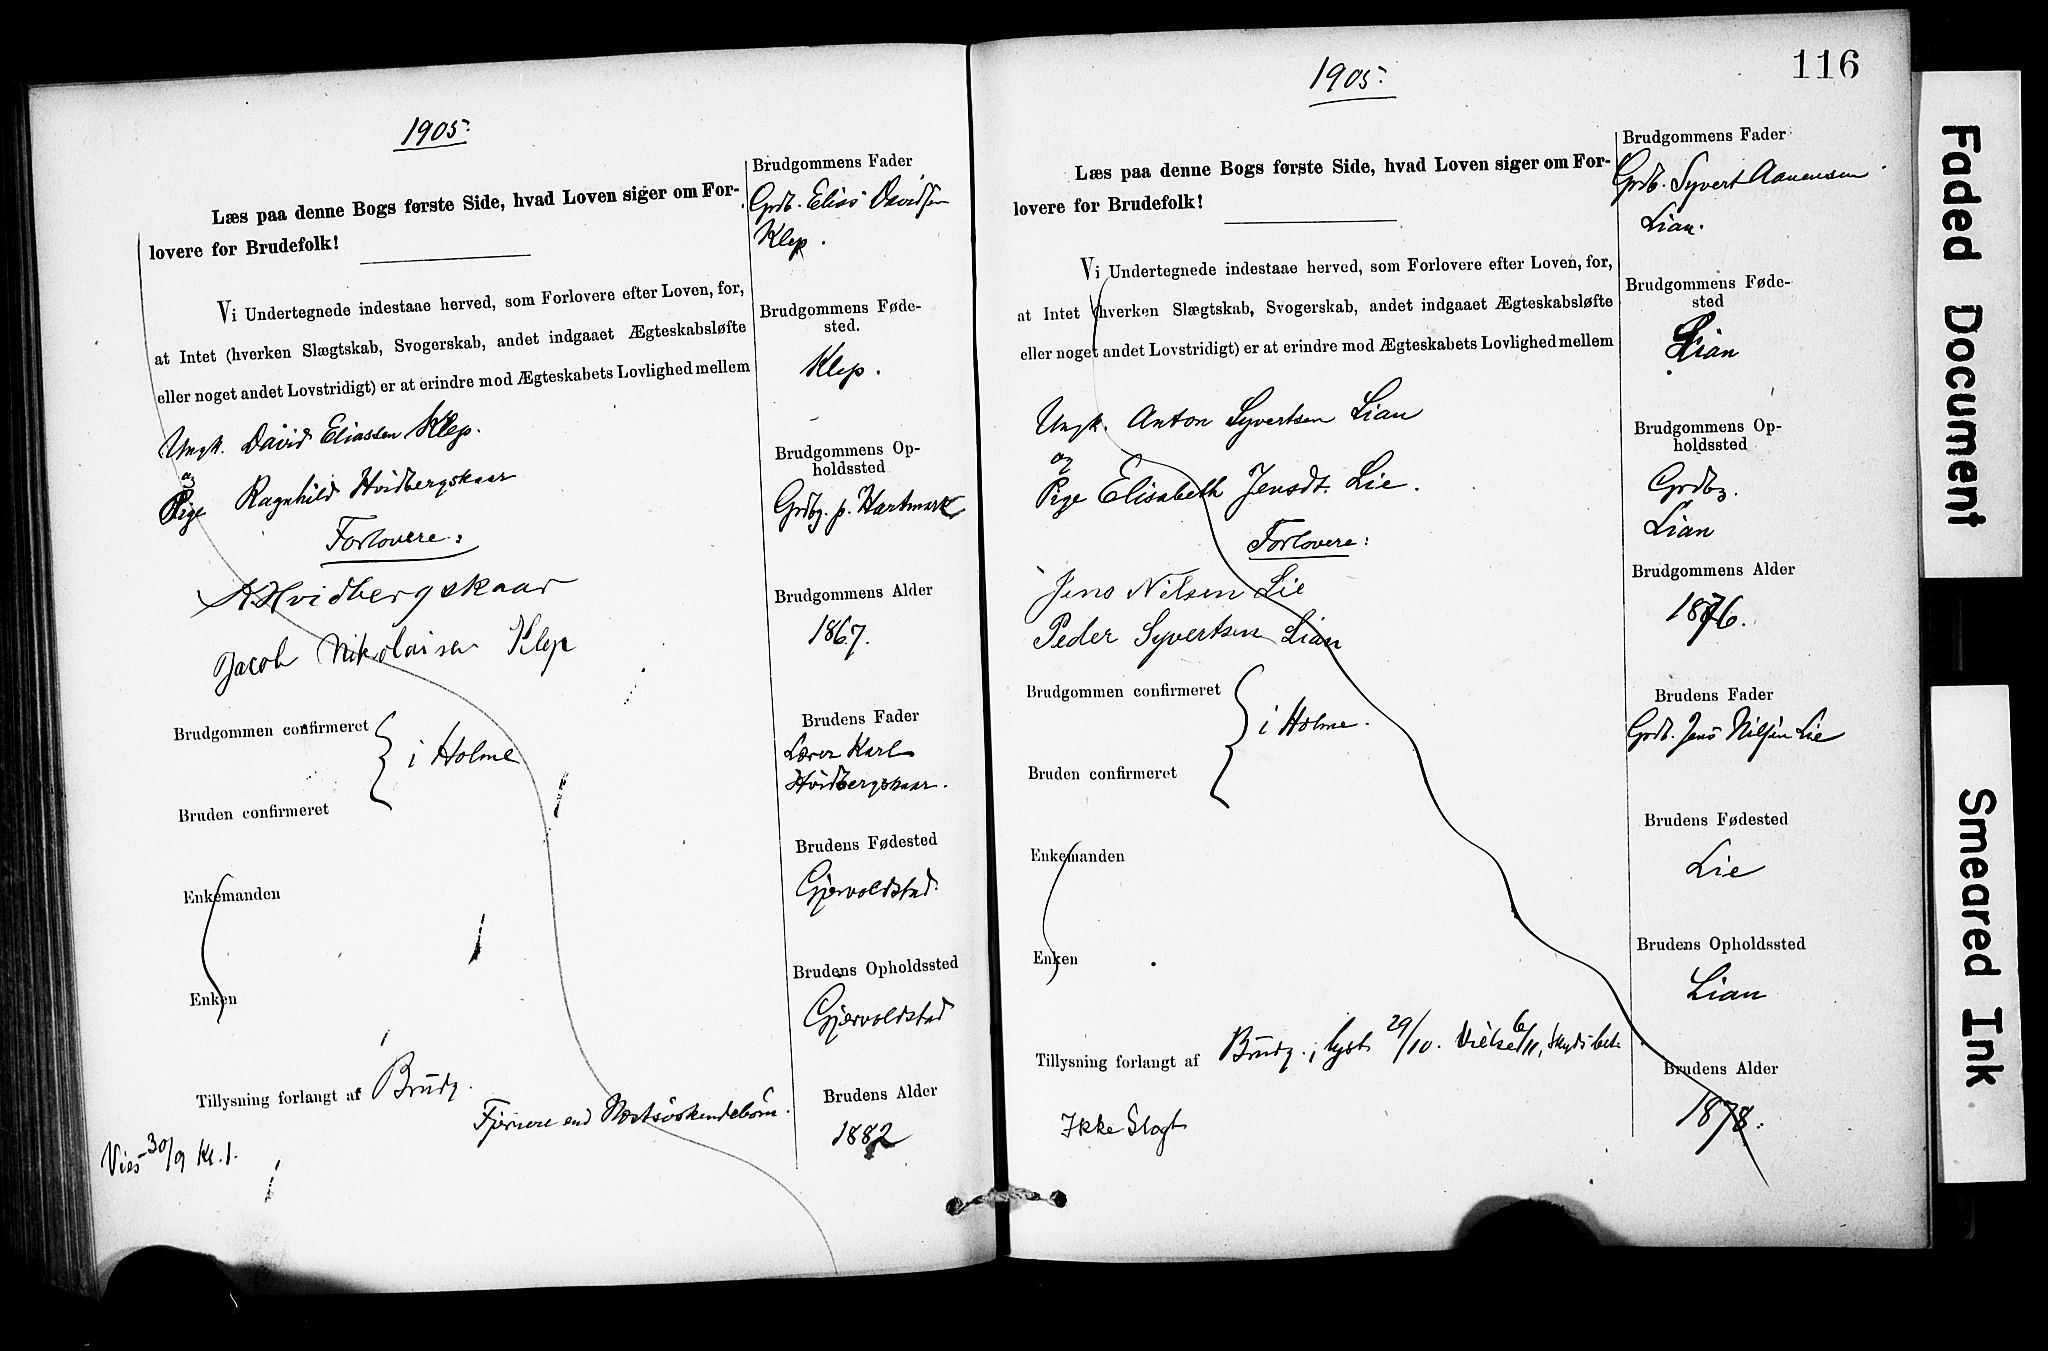 1905.
Læs paa denne Bogs første Side, hvad Loven siger om For-
lovere for Brudefolk!
Vi Undertegnede indestaae herved, som Forlovere efter Loven, for,
at Intet (hverken Slægtskab, Svogerskab, andet indgaaet Ægteskabsløfte
eller noget andet Lovstridigt) er at erindre mod Ægteskabets Lovlighed mellem
Ungk. David Eliassen Klep.
og
Pige Ragnhild Hvidbergskaar
Forlovere:
K. Hvidbergskaar
Jacob Nikolaisen Klep
Brudgommen confirmeret
i Holme
Bruden confirmeret
Enkemanden
Enken
Tillysning forlangt af Brudg.
Fjernere end Næstsøskendebørn.
Vies 30/9 Kl. 1.
Brudgommens Fader
Grdb. Elias Davidsen
Klep.
Brudgommens Føde-
sted.
Klep.
Brudgommens Op-
holdssted
Grdbg. p. Hartmark
Brudgommens Alder
1867.
Brudens Fader
Lærer Karl
Hvidbergskaar.
Brudens Fødested
Gjervoldstad.
Brudens Opholdssted
Gjervoldstad
Brudens Alder
1882
116
1905.
Læs paa denne Bogs første Side, hvad Loven siger om For-
lovere for Brudefolk!
Vi Undertegnede indestaae herved, som Forlovere efter Loven, for,
at Intet (hverken Slægtskab, Svogerskab, andet indgaaet Ægteskabsløfte
eller noget andet Lovstridigt) er at erindre mod Ægteskabets Lovlighed mellem
Ungk. Anton Syvertsen Lian
og
Pige Elisabeth Jensdt. Lie.
Forlovere:
Jens Nilsen Lie
Peder Syvertsen Lian
Brudgommen confirmeret
i Holme.
Bruden confirmeret
Enkemanden
Enken
Tillysning forlangt af Brudg., lyst 29/10. Vielse 6/11,
Ikke Slagt
Brudgommens Fader
Grdb. Syvert Aanensen
Lian.
Brudgommens Føde-
sted
Lian
Brudgommens Op-
holdssted
Grdbg.
Lian
Brudgommens Alder
1876.
Brudens Fader
Grdb. Jens Nilsen Lie
Brudens Fødested
Lie
Brudens Opholdssted
Lian
Brudens Alder
1878.
Faded Document
Smeared Ink